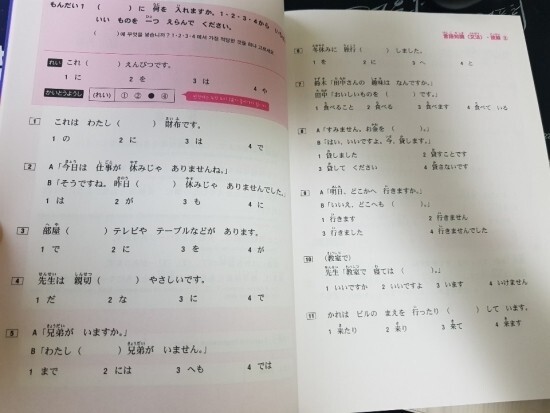 もんだい1 （　　）に 何を 入れますか。1・2・3・4から
いい ものを 一つ えらんで ください。
れい これ（　　）えんぴつです。
1 に　2 を　3 は　4 や
かいとうようし （れい） ① ② ● ④
1 これは わたし（　　）財布です。
1 の　2 に　3 は　4 で
2 A「今日は 仕事が 休みじゃ ありませんね。」
B「そうですね。昨日（　　）休みじゃ ありませんでした。」
1 は　2 が　3 も　4 に
3 部屋（　　）テレビや テーブルなどが あります。
1 で　2 に　3 を　4 が
4 先生は 親切（　　）やさしいです。
1 だ　2 な　3 に　4 で
5 A「兄弟が いますか。」
B「わたし（　　）兄弟が いません。」
1 まで　2 には　3 へも　4 では
6 冬休みに 旅行（　　）しました。
1 が　2 を　3 に　4 へ
7 鈴木「田中さんの 趣味は なんですか。」
田中「おいしいものを（　　）です。」
1 食べること　2 食べる　3 食べます　4 食べて いる
8 A「すみません。お茶を（　　）。」
B「はい、いいですよ。今、貸します。」
1 貸しました　2 貸すことです
3 貸して ください　4 貸さないです
9 A「明日、どこかへ 行きますか。」
B「いいえ、どこへも（　　）。」
1 行きます　2 行きません
3 行きました　4 行きませんでした
10 （教室で）
先生「教室で 寝ては（　　）。」
1 いいですか　2 いいですよ　3 います　4 いけません
11 かれは ビルの まえを 行ったり（　　）して います。
1 来たり　2 来り　3 来て　4 来ます